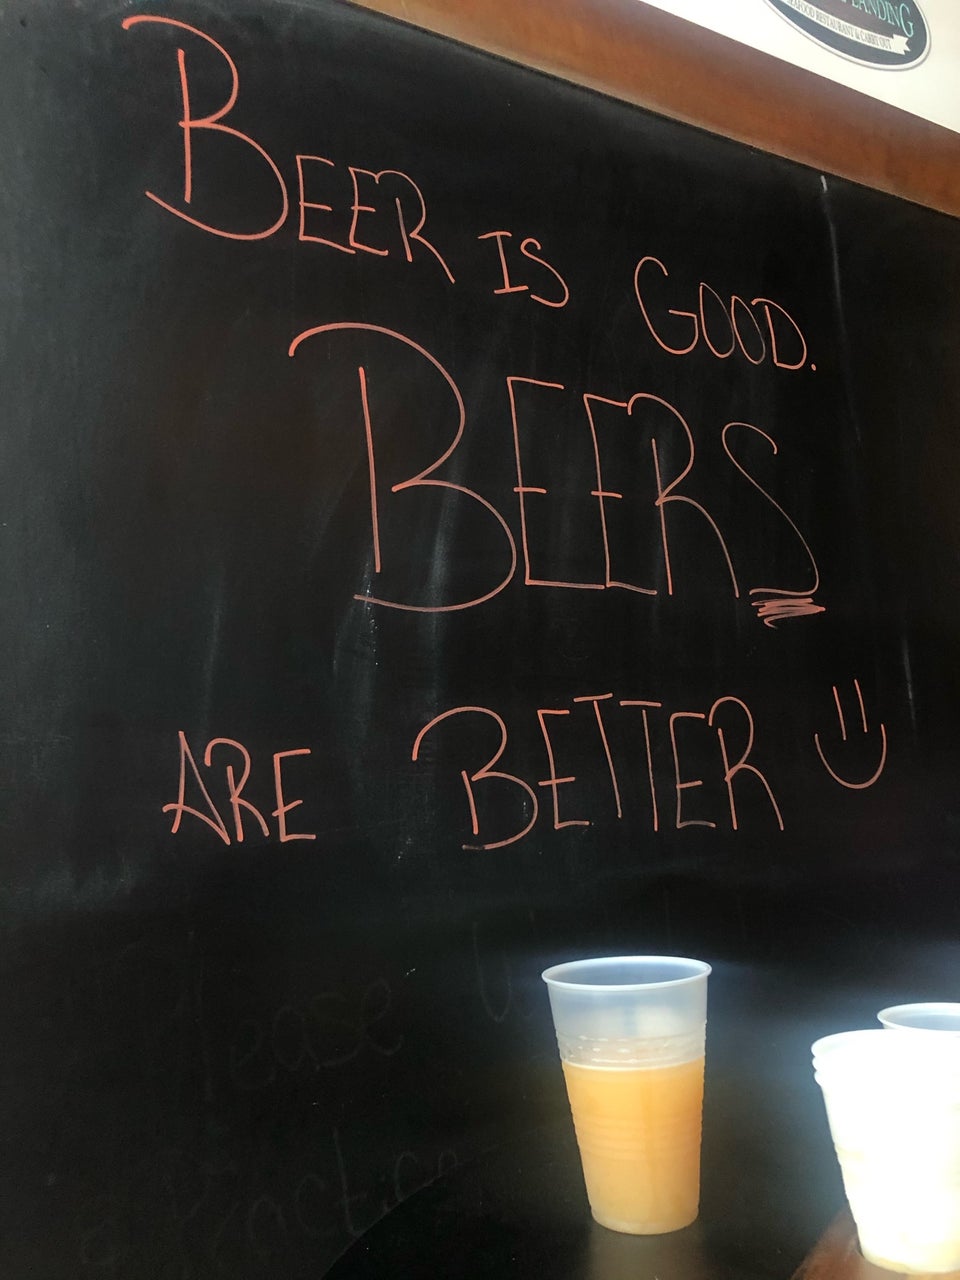 LANDING
SEAFOOD RESTAURANT & CARRY OUT
BEER IS GOOD.
BEERS
ARE BETTER
Please
Practice